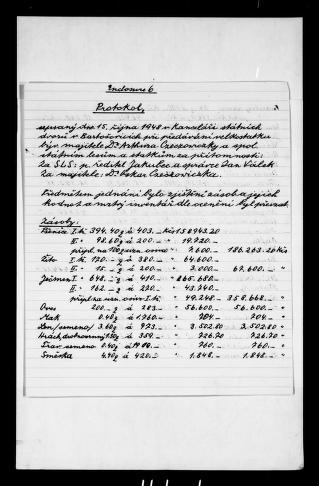 Enclosure 6
Protokol,
sepsaný dne 15. října 1948 v Kanceláři státních
dvorů v Bartošovicích při předávání velkostatku
býv. majitele Dr. Arthura Czeczowiczky a spol.
státním lesům a statkům za přítomnosti:
Za SLS: p. ředitel Jakubec a správce Dan Válek
Za majitele: Dr. Oskar Czeczowiczka.
Předmětem jednání bylo zjištění zásob a jejich
hodnot a mrtvý inventář dle ocenění byl převzat.
Zásoby:
Pšenice I. tř. 394.40 q á 403.- Kčs 158943.20
II. " 98.60 q á 200.- " 19.720.-
připl. na 100 q uzn. osiva " 7.600.- 186.263.20 Kčs
Žito I. tř. 170.- q á 380.- " 64.600.-
II. " 15.- q á 200.- " 3.000.- 67.600.- "
Ječmen I. " 648.- q á 410.- " 265.680.-
II. " 162.- q á 270.- " 43.740.-
připl. na uzn. osivo I. tř. " 49.248.- 358.668.- "
Oves 200.- q á 283.- " 56.600.- 56.600.- "
Mák 0.40 q á 1.760.- " 704.- 704.- "
Len /semeno/ 3.60 q á 973.- " 3.502.80 3.502.80 "
" 726.70 726.70 "
semeno 0.40 q á 1900.- " 760.- 760.- "
Směska 4.40 q á 420.- " 1.848.- 1.848.- "